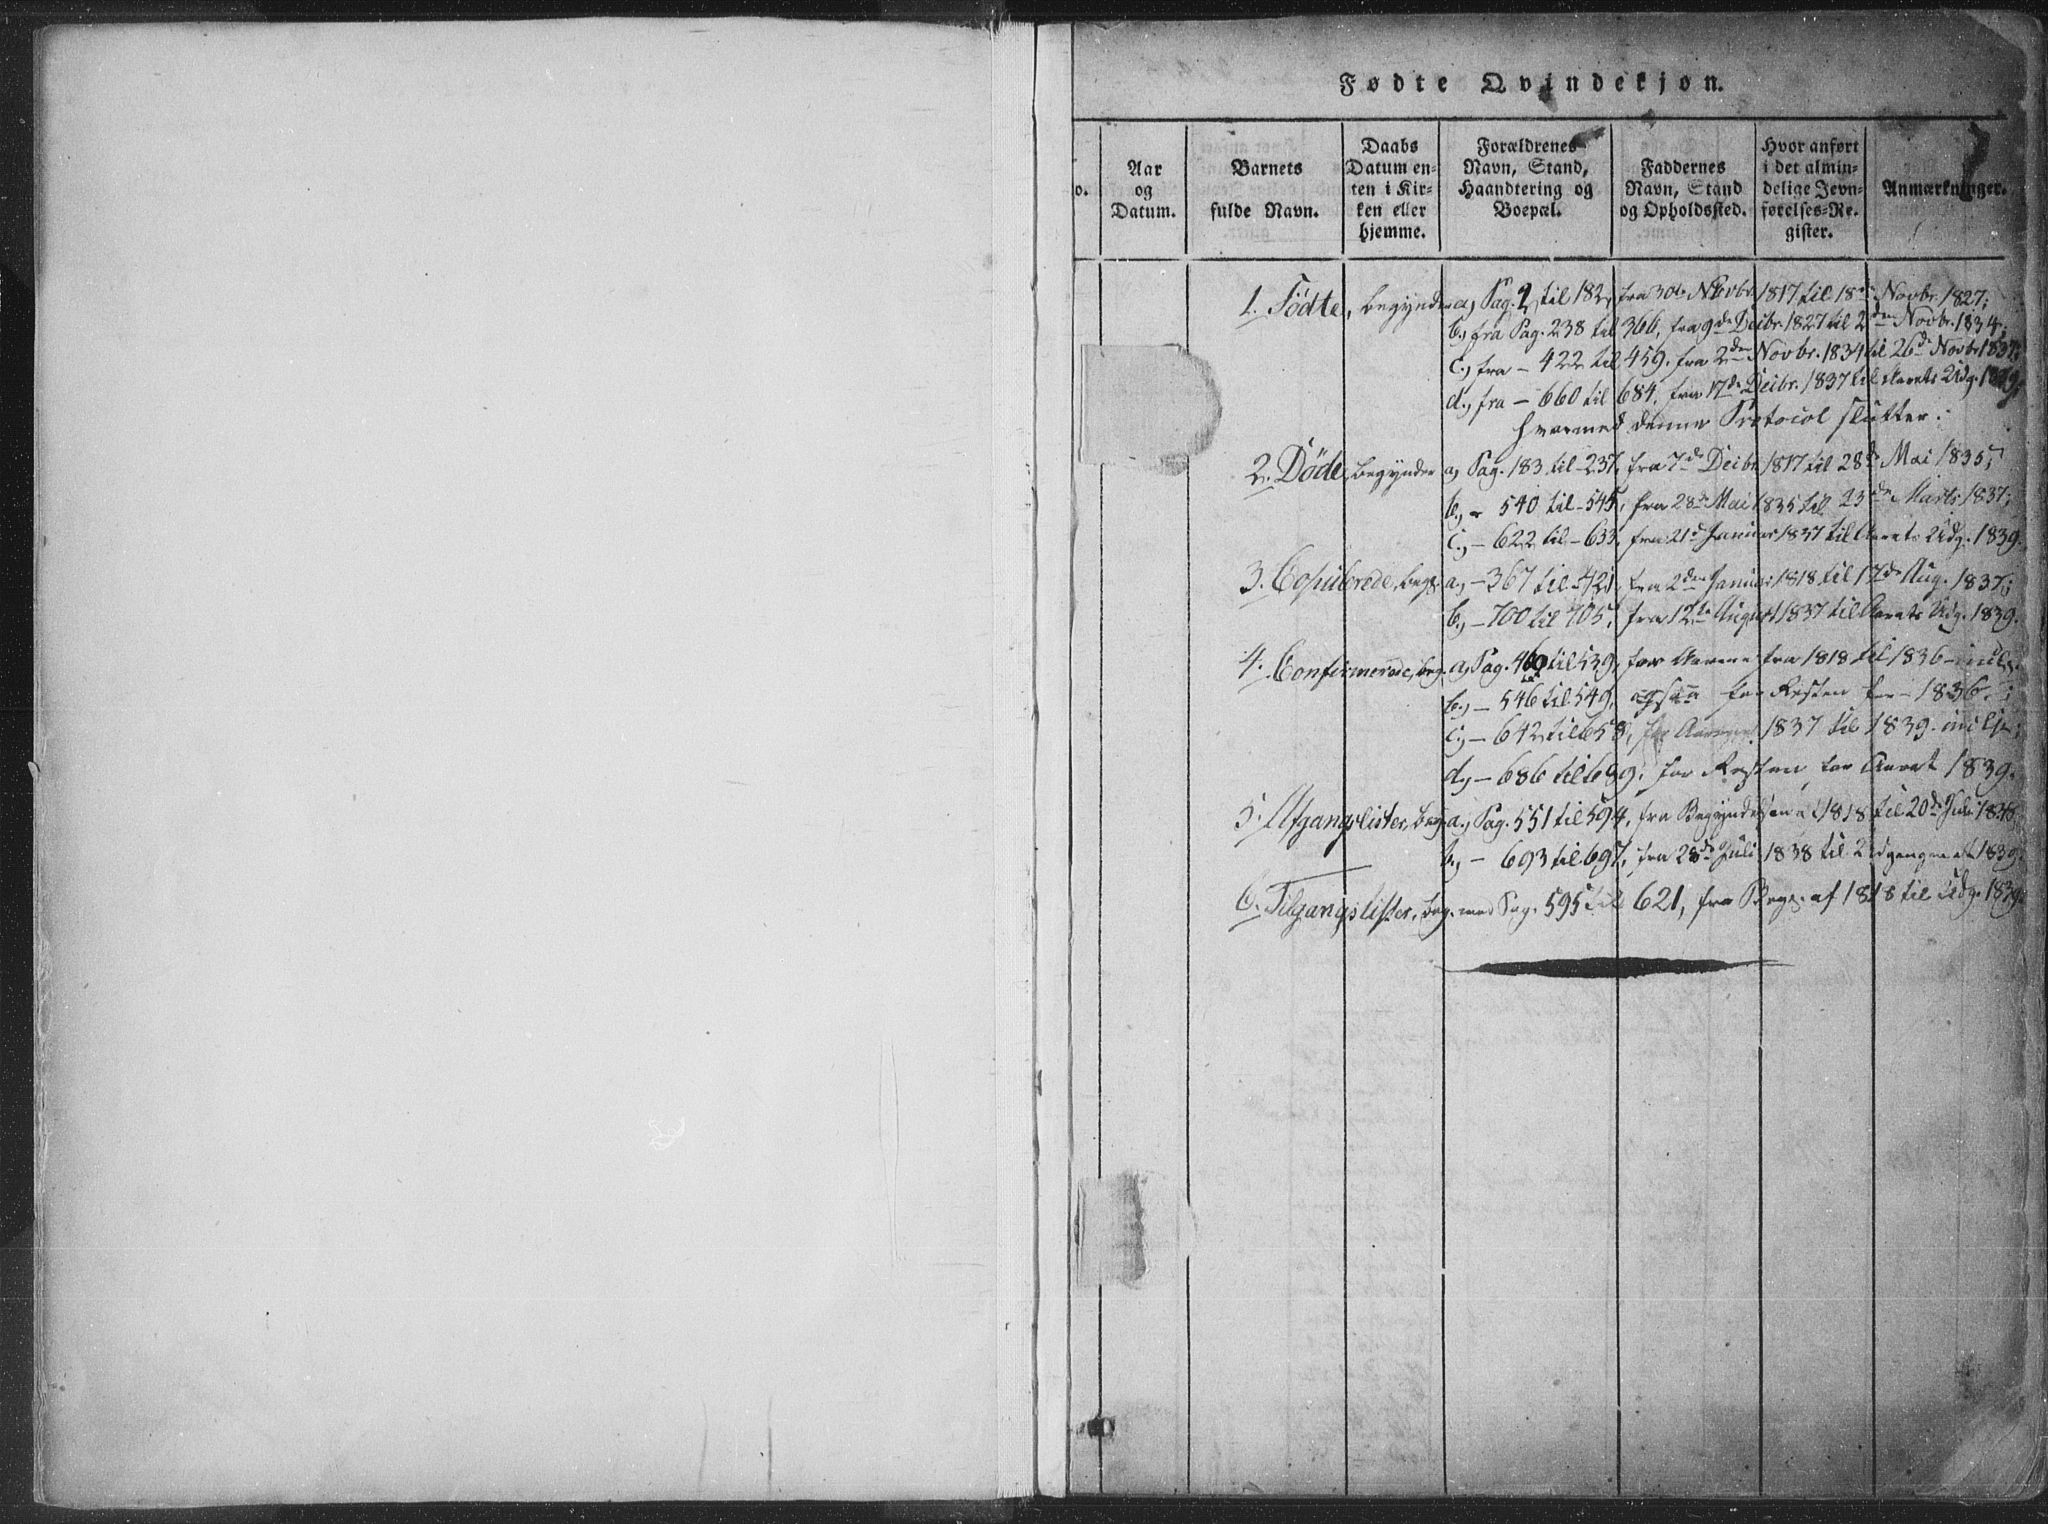 Fødte Qvindekjøn.
o.
Aar og Datum.
Barnets fulde Navn.
Daabs Datum enten i Kirken eller hjemme.
Forældrenes Navn, Stand, Haandtering og Boepæl.
Faddernes Navn, Stand og Opholdssted.
Hvor anført i det almindelige Jevnførelses-Register.
Anmærkninger.
1. Födte, begynder a, Pag. 2 til 182, fra 30te Novbr. 1817 til 18de Novbr. 1827;
b., fra Pag. 238 til 366, fra 9de Decbr. 1827 til 2den Novbr. 1834;
c., fra – 422 til 459. fra 2den Novbr. 1834 til 26de Novbr. 1837;
d., fra – 660 til 684, fra 17de Decbr. 1837 til Aarets Udg. 1839,
hvormed denne Protocol slutter.
2. Döde, begynder a, Pag. 183 til 237, fra 7de Decbr. 1817 til 28de Mai 1835;
b., – 540 til 545, fra 28de Mai 1835 til 23de Marts 1837;
c., – 622 til – 633, fra 21de Januar 1837 til Aarets Udg. 1839.
3. Copulerede, beg. a., – 367 til 421, fra 2den Januar 1818 til 17de Aug. 1837;
b., – 700 til 705, fra 12te August 1837 til Aarets Udg. 1839.
4. Confirmerede, beg. a, Pag. 460 til 539, for Aarene fra 1818 til 1836 incl.
b., – 546 til 549, ogsaa for Resten for – 1836.;
c., – 642 til 658, for Aarene 1837 til 1839. incl.;
d, – 686 til 689, for Resten for Aaret 1839.
5. Afgangslister, beg. a., Pag. 551 til 594, fra Begyndelsen 1818 til 20de Juli 1838,
b., – 693 til 697, fra 28de Juli 1838 til Udgangen af 1839.
6. Tilgangslister, beg. med Pag. 595 til 621, fra Beg. af 1818 til Udg. 1839.